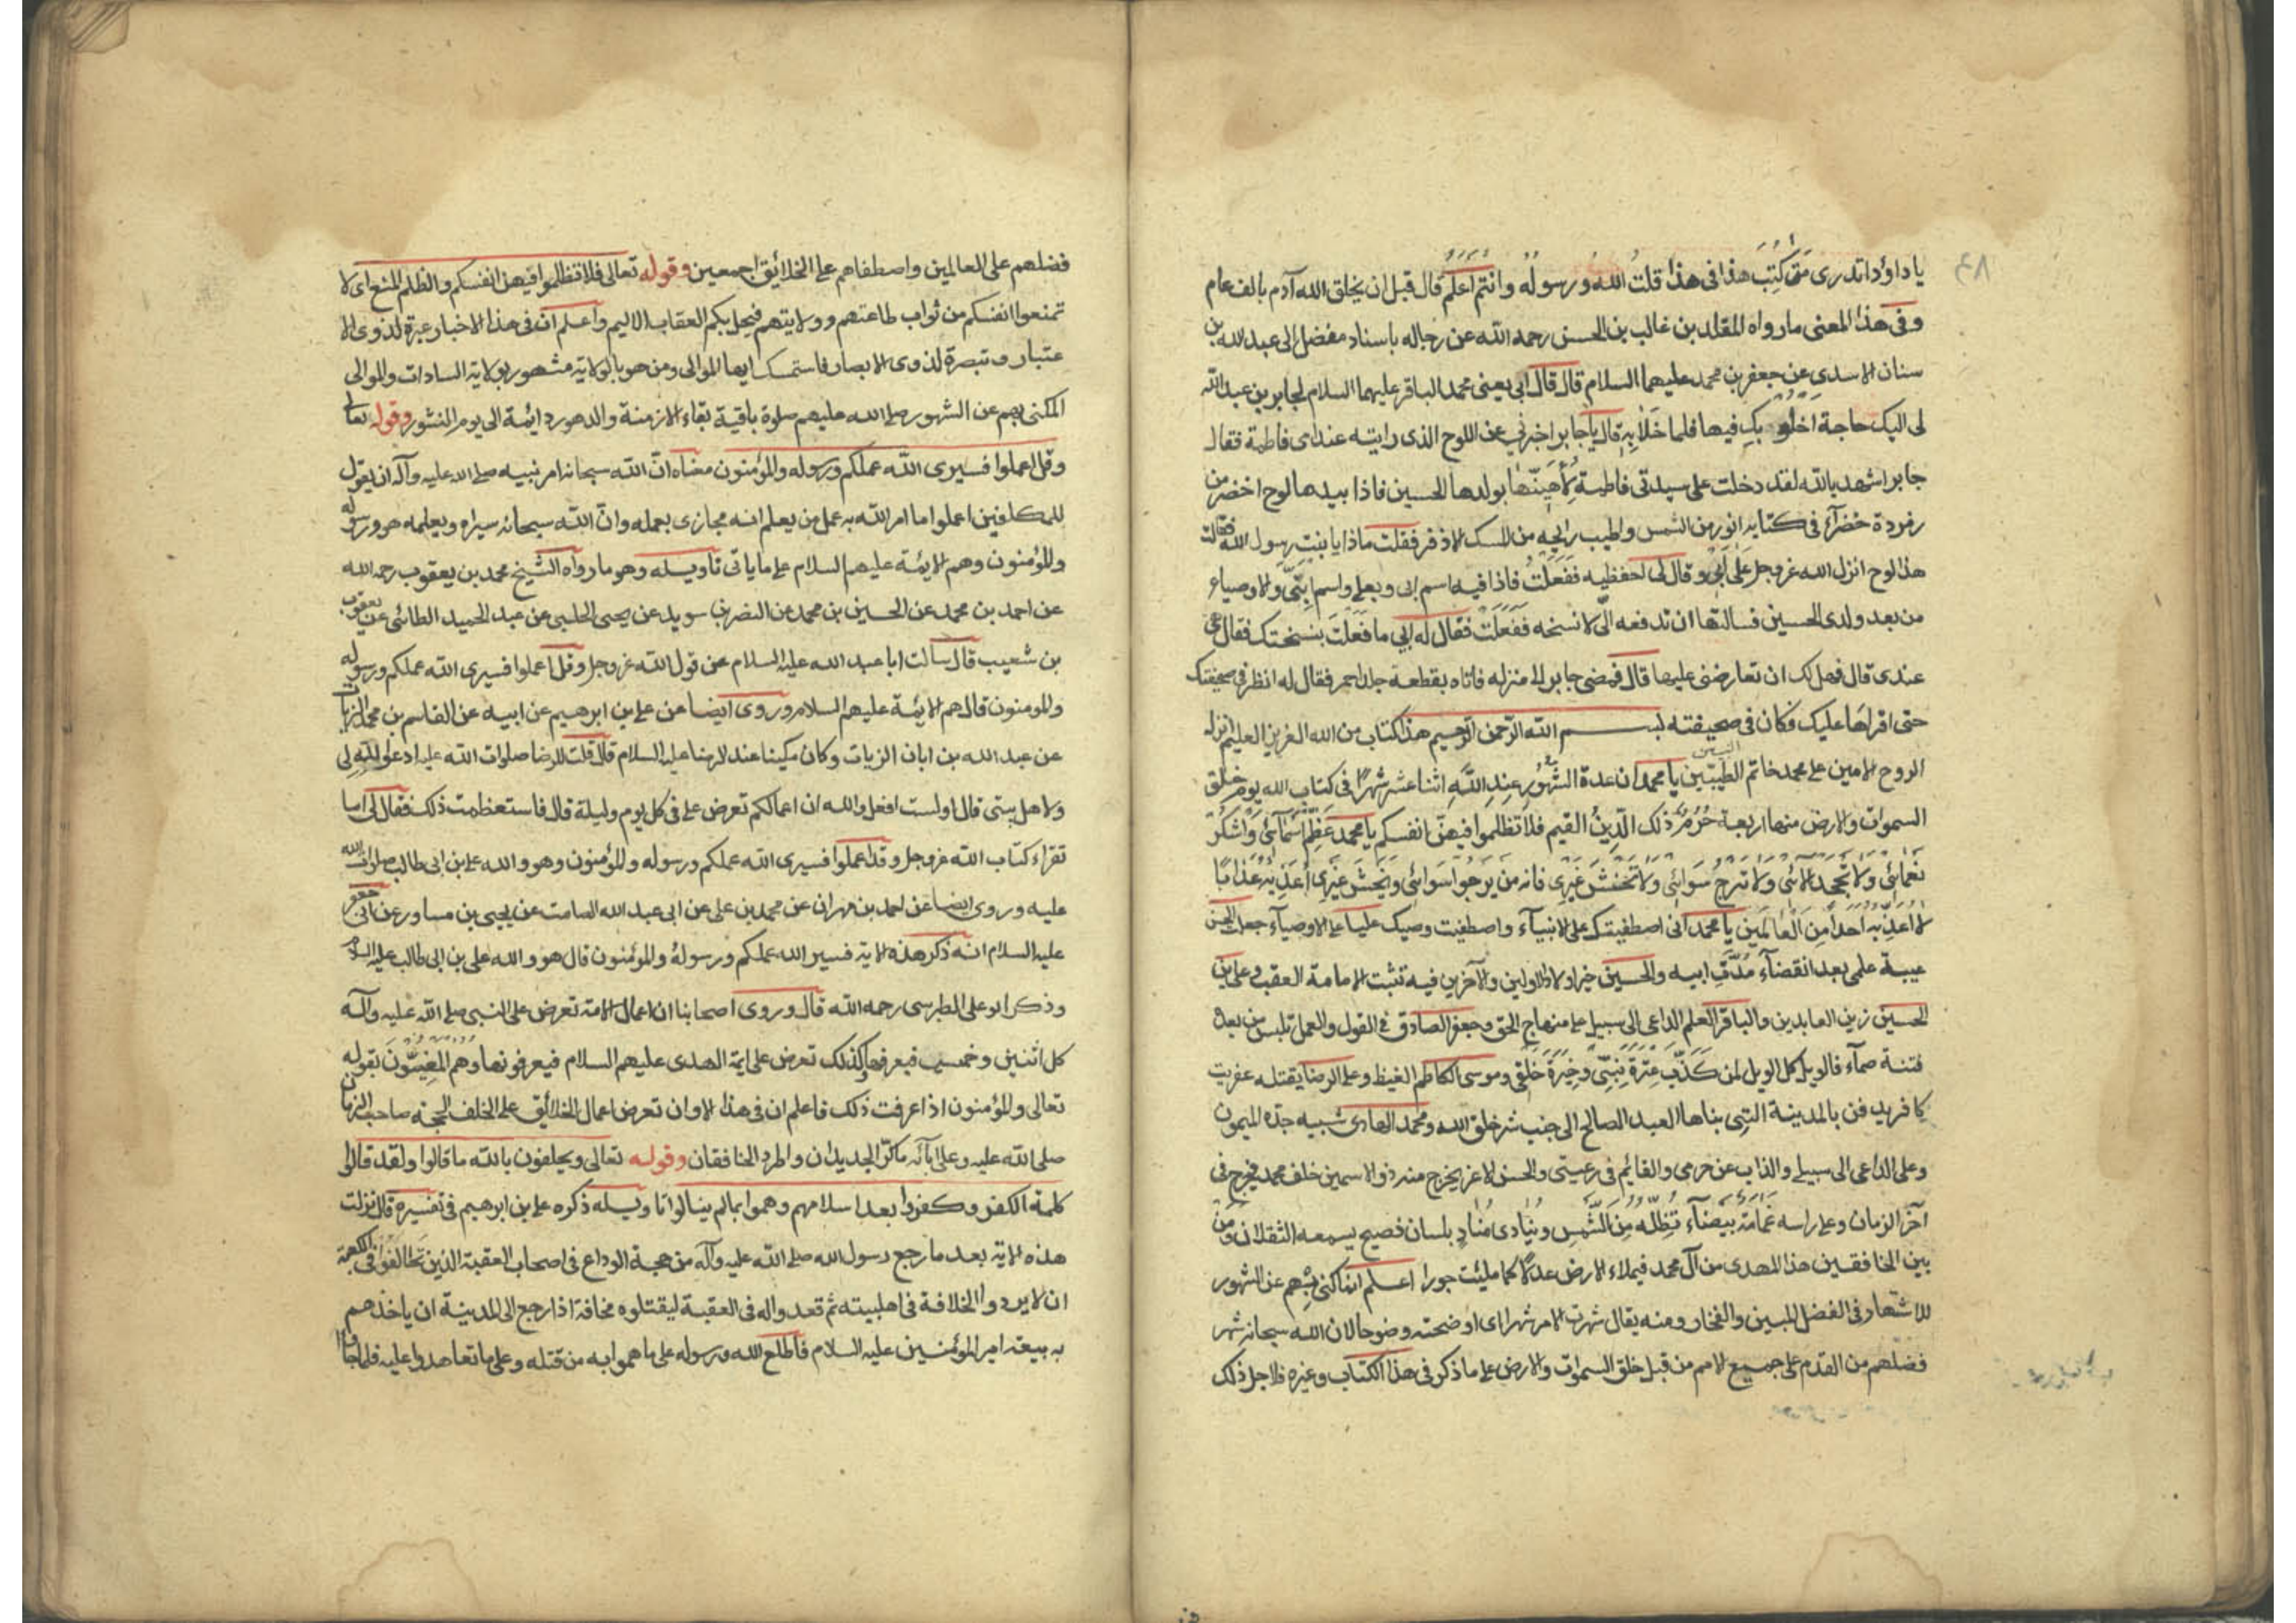 ٤٨
يا داوٗد اتدرى مَتى كُتِبَ هذا فى هذا قلتُ اللهُ ورسولُه وانتم اعلمُ قال قبل ان يخلق الله آدم بالف عام
وفى هذا المعنى ما رواه المقلد بن غالب بن الحسن رحمه الله عن رجاله باسناد مفضل الى عبد الله بن
سنان الاسدي عن جعفر بن محمد عليهما السلام قال قال ابى يعنى محمد الباقر عليهما السلام لجابر بن عبد الله
لى اليك حاجة اخلو بك فيها فلما خَلَا بِهِ قال يا جابر اخبرنى عن اللوح الذى رايته عند امى فاطمة فقال
جابر اشهد بالله لقد دخلت على سيدتى فاطمة لِأُهَنِّئَها بولدها الحسين فاذا بيدها لوح اخضر من
زمردة خضرآء فى كتابة انور من الشمس واطيب رايحه من المسك الاذفر فقلت ماذا يا بنت رسول الله فقالت
هذا لوح انزل الله عز وجل عَلَى اَبِى وقال لى احفظيه ففَعَلْتُ فاذا فيه اسم ابى وبعلى واسم ابنَىَّ والاوصياء
من بعد ولدى الحسين فسالتها ان تدفعه الىّ لانسخه فَفَعَلَتْ فقال له ابى ما فعَلَتْ بنسختك فقال هى
عندى قال فهل لك ان تعارضنى عليها قال فمضى جابر الى منزله فاتاه بقطعة جلد احمر فقال له انظر فى صحيفتك
حتى اقراهَا عليك فكان فى صحيفته بسم الله الرّحمن الرّحيم هذا كتاب من الله العزيز العليم انزله
الروح الامين على محمد خاتم النبيين يا محمد ان عدة الشهُورِ عِندَ اللهِ اثنا عشر شهرًا فى كتاب الله يوم خلق
السموات والارض منها اربعة حُرُمٌ ذلك الدِّينُ القيم فلا تظلموا فيهنّ انفسكم يا محمد عَظِّمْ اَسْمَائى وَاشكُر
نَعْمَائى وَلَا تجحَد آلَائى وَلا تَرجُ سَوَائى وَلَا تَخشَ غَيرِى فانه مَن يَرجُوا سوائى ويَخشَ غَيرِى اُعَذِّبْهُ عَذَابًا
لا اُعَذِّبُه اَحَدًا مِنَ العَالَمِينَ يا محمد انى اصطفيتك على الانبيآء واصطفيت وصيك عليا على الاوصيآء جعلت الحسن
عيبة علمى بعد انقضآء مُدَّةِ ابيه والحسين خير اولاد الاولين والآخرين فيه تثبت الامامة العقب وعلى بن
الحسين زين العابدين والباقر العلم الداعى الى سبيلى على منهاج الحق وجعفر الصادق فى القول والعمل تلبس من بعده
فتنة صمآء فالويل كل الويل لمن كَذَّبَ عِترَةَ نَبِيِّى وخِيَرَةَ خَلْقِى وموسى الكاظم الغيظ وعلى الرضا يقتله عفريت
كافر يدفن بالمدينة التى بناها العبد الصالح الى جنب شر خلق الله ومحمد الهادى شبيه جدّه الميمون
وعلى الداعى الى سبيلى والذاب عن حرمى والقائم فى رعيتى والحسن الاغر يخرج منه ذو الاسمين خلف محمد يخرج فى
آخر الزمان وعلى راسه غَمَامَة بَيضَآء تُظِلُّهُ مِنَ الشَّمْسِ ويُنَادِى مُنَادٍ بلسان فصيح يسمعه الثقلان ومَن
بين الخافقين هذا المهدى من آل محمد فيملاء الارض عدلًا كما ملئت جورا اعلم انما كنى بهم عن الشهور
للاشتهار فى الفضل المبين والفخار ومنه يقال شهرت الامر شهرا اى اوضحته وضوحا لان الله سبحانه شهر
فضلهم من القدم على جميع الامم من قبل خلق السموات والارض على ما ذكر فى هذا الكتاب وغيره فلاجل ذلك
فضلهم على العالمين واصطفاهم على الخلائق اجمعين وقوله تعالى فلا تظلموا فيهن انفسكم والظلم المنع اى لا
تمنعوا انفسكم من ثواب طاعتهم وولايتهم فيحل بكم العقاب الاليم واعلم ان فى هذا الاخبار عبرة لذوى الا
عتبار وتبصرة لذوى الابصار فاستمسك ايها الموالى ومن هو بالولاية مشهور بولاية السادات والموالى
المكنى بهم عن الشهور صلى الله عليهم صلوة باقية بقاء الازمنة والدهور دائمة الى يوم النشور وقوله تعالى
وقل اعملوا فسيرى الله عملكم ورسوله والمؤمنون معناه انّ الله سبحانه امر نبيه صلى الله عليه وآله ان يقول
للمكلفين اعملوا ما امر الله به عمل من يعلم انه مجازى بعمله وانّ الله سبحانه سيراه ويعلمه هو ورسوله
والمؤمنون وهم الايئة عليهم السلام على ما ياتى تاويله وهو ما رواه الشيخ محمد بن يعقوب رحمه الله
عن احمد بن محمد عن الحسين بن محمد عن النضر بن سويد عن يحيى الحلبى عن عبد الحميد الطائى عن يعقوب
بن شعيب قال سالت ابا عبد الله عليه السلام عن قول الله عز وجل وقل اعملوا فسيرى الله عملكم ورسوله
والمومنون قال هم الايئة عليهم السلام وروى ايضا عن على بن ابرهيم عن ابيه عن القاسم بن محمد الزيات
عن عبد الله بن ابان الزيات وكان مكينا عند الرضا عليه السلام قال قلت للرضا صلوات الله عليه ادعوا الله لى
ولاهل بيتى قال اولست افعل والله ان اعمالكم تعرض على فى كل يوم وليلة قال فاستعظمت ذلك فقال لى اما
تقراء كتاب الله عز وجل وقل اعملوا فسيرى الله عملكم ورسوله والمؤمنون وهو والله على بن ابى طالب صلوات الله
عليه وروى ايضا عن احمد بن مهران عن محمد بن على عن ابى عبد الله الصامت عن يحيى بن مساور عن ابى جعفر
عليه السلام انه ذكر هذه الاية فسير الله عملكم ورسولهُ والمؤمنون قال هو والله على بن ابى طالب عليه السلام
وذكر ابو على الطبرسى رحمه الله قال وروى اصحابنا ان اعمال الامة تعرض على النبى صلى الله عليه وآله
كل اثنين وخميس فيعرفها وكذلك تعرض على ايمة الهدى عليهم السلام فيعرفونها وهُم المَعنِيّونَ بقوله
تعالى والمؤمنون اذا عرفت ذلك فاعلم ان فى هذا الاوان تعرض اعمال الخلائق على الخلف الحجة صاحب الزمان
صلى الله عليه وعلى آبآئه ما كرّ الجديدان واطرد الخافقان وقوله تعالى ويحلفون بالله ما قالوا ولقد قالوا
كلمة الكفر وكفروا بعد اسلامهم وهموا بما لم ينالوا تاويله ذكره على بن ابرهيم فى تفسيره قال نزلت
هذه الاية بعد ما رجع رسول الله صلى الله عليه وآله من حجة الوداع فى اصحاب العقبة الذين تَحَالَفُوا فى الكعبة
ان لا يردوا الخلافة فى اهلبيته ثم قعدوا له فى العقبة ليقتلوه مخافة اذا رجع الى المدينة ان ياخذهم
به بيعة امير المؤمنين عليه السلام فاطلع الله ورسوله على ما هموا به من قتله وعلى ما تعاهدوا عليه فلما جاؤا